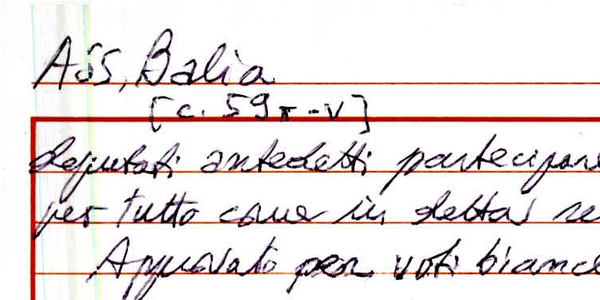 Ass, Balia
[c. 59r-v]
deputati antedetti partecipare
per tutto come in detta
Approvato per voti bianc